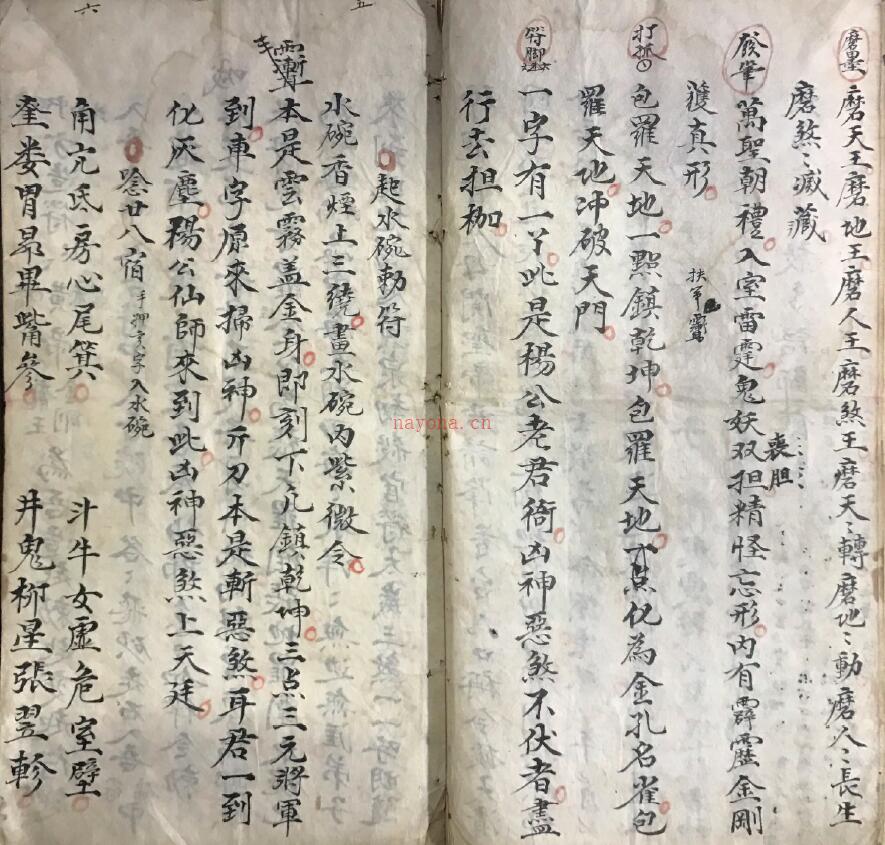 磨墨 磨天王磨地王磨人王磨煞王磨天〻轉磨地〻動磨人〻長生
磨煞〻滅藏
發筆 萬聖朝禮入室雷霆鬼妖双担精怪忘形内有霹靂金剛
喪胆
護真形
扶筆
打 包羅天地一點鎮乾坤包羅天地下点化為金孔名雀包
羅天地冲破天門
符脚 一字有一丫此是楊公老君衙凶神惡煞不伏者盡
行去担枷
五
起水碗勅符
水碗香煙上三繞畫水碗内紫微令
本是雲霧盖金身即刻下凢鎮乾坤三点三元將軍
到車字原來掃凶神斤刀本是斬惡煞耳君一到
化灰塵楊公仙師來到此凶神惡煞上天廷
唸廿八宿 手押 字入水碗
角亢氐房心尾箕 斗牛女虛危室壁
奎娄胃昴畢觜參 井鬼柳星張翌軫
六
nayona.cn